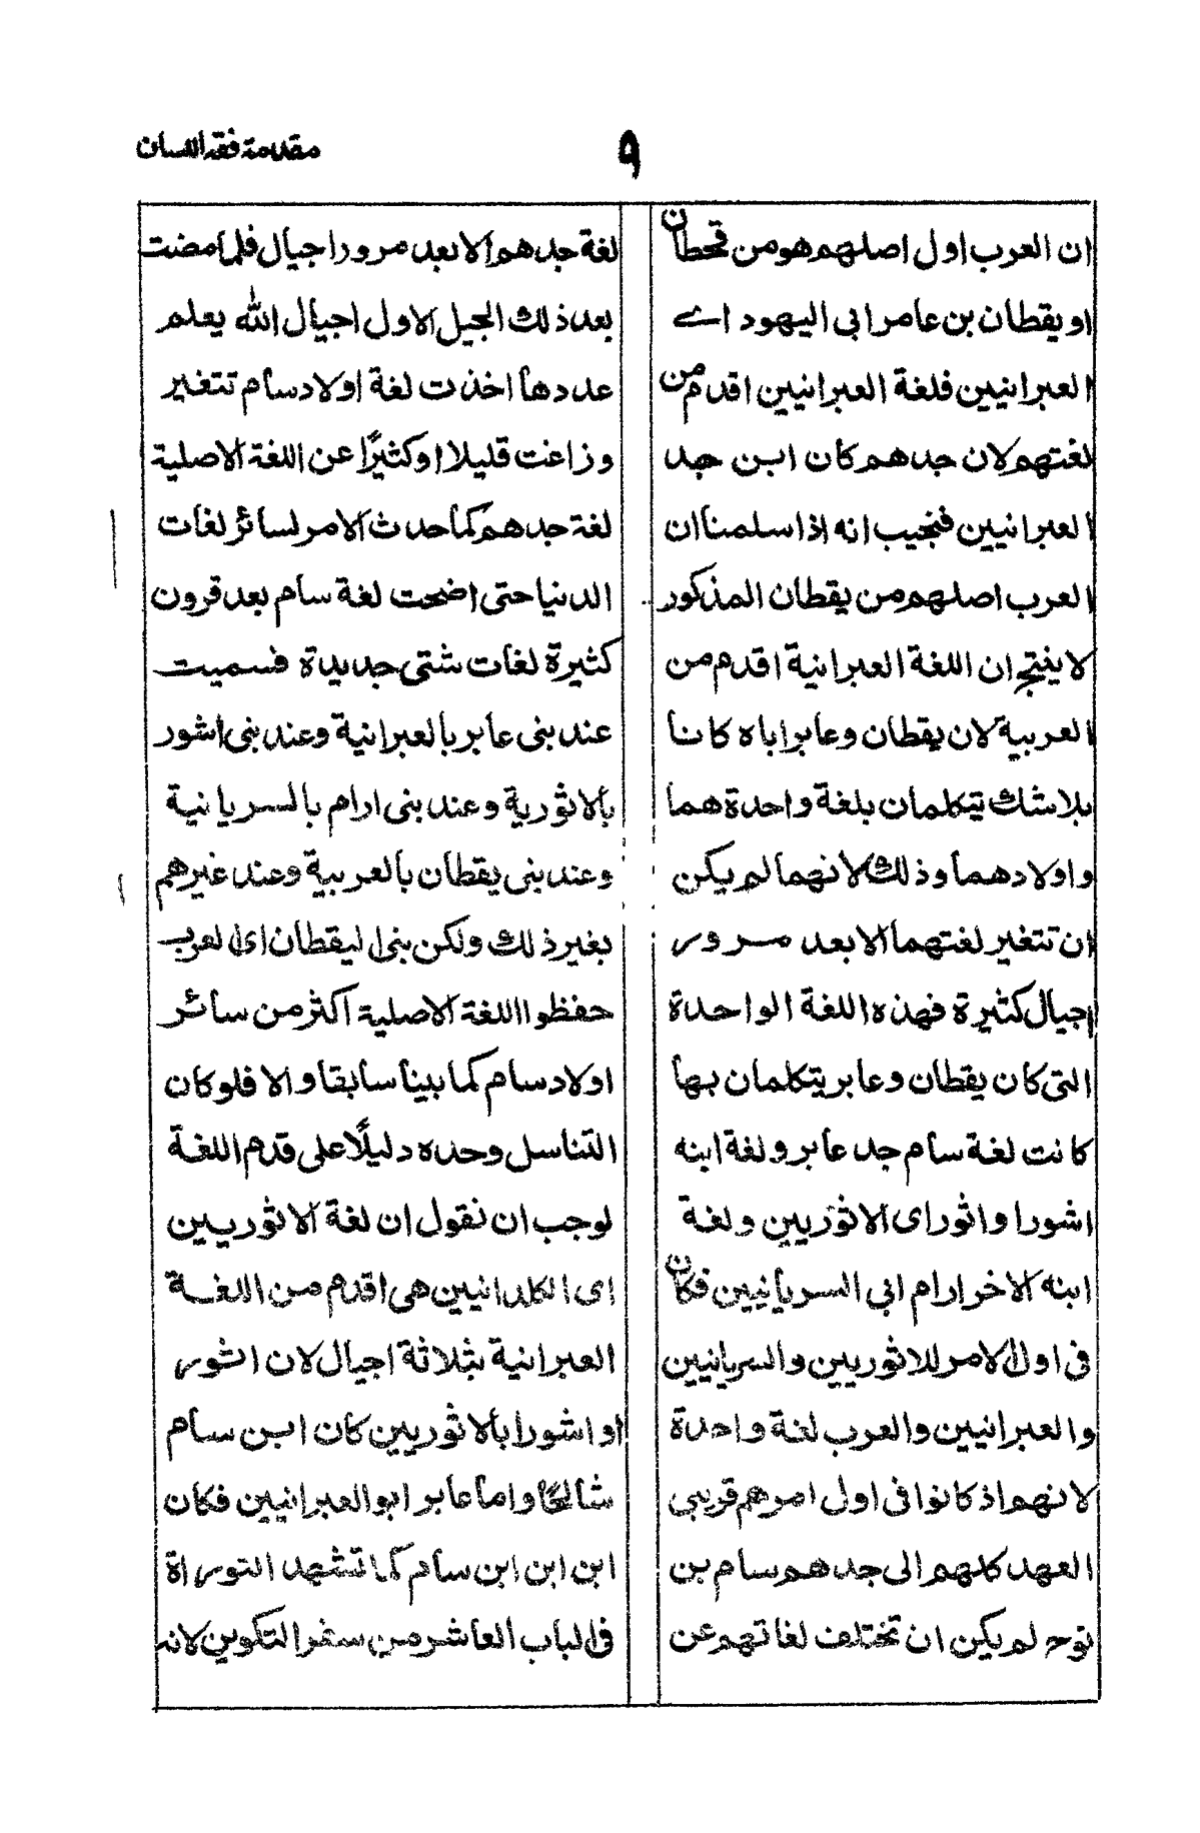 مقدمة فقه اللسان
٩
ان العرب اول اصلهم هو من قحطان
او يقطان بن عامر ابى اليهود اے
العبرانيين فلغة العبرانيين اقدم من
لغتهم لان جدهم كان ابن جد
العبرانيين فنجيب انه اذا سلمنا ان
العرب اصلهم من يقطان المذكور
لا ينتج ان اللغة العبرانية اقدم من
العربية لان يقطان وعابر اباه كانا
بلا شك يتكلمان بلغة واحدة هما
واولادهما وذلك لانهما لم يكن
ان تتغير لغتهما الا بعد مرور
اجيال كثيرة فهذه اللغة الواحدة
التى كان يقطان وعابر يتكلمان بها
كانت لغة سام جد عابر ولغة ابنه
اشور او اثور اى الاثوريين ولغة
ابنه الاخر ارام ابى السريانيين فكان
فى اول الامر للاثوريين والسريانيين
والعبرانيين والعرب لغة واحدة
لانهم اذ كانوا فى اول امرهم قريبى
العهد كلهم الى جدهم سام بن
نوح لم يكن ان تختلف لغاتهم عن
لغة جدهم الا بعد مرور اجيال فلما مضت
بعد ذلك الجيل الاول اجيال الله يعلم
عددها اخذت لغة اولاد سام تتغير
وزاغت قليلا او كثيرًا عن اللغة الاصلية
لغة جدهم كما حدث الامر لسائر لغات
الدنيا حتى اضحت لغة سام بعد قرون
كثيرة لغات شتى جديدة فسميت
عند بنى عابر بالعبرانية وعند بنى اشور
بالاثورية وعند بنى ارام بالسريانية
وعند بنى يقطان بالعربية وعند غيرهم
بغير ذلك ولكن بنى ليقطان اى العرب
حفظوا اللغة الاصلية اكثر من سائر
اولاد سام كما بينا سابقا والا فلو كان
التناسل وحده دليلًا على قدم اللغة
لوجب ان نقول ان لغة الاثوريين
اى الكلدانيين هى اقدم من اللغة
العبرانية بثلاثة اجيال لان اثور
او اشور ابا الاثوريين كان ابن سام
شالحًا واما عابر ابو العبرانيين فكان
ابن ابن ابن سام كما تشهد التوراة
فى الباب العاشر من سفر التكوين لانه